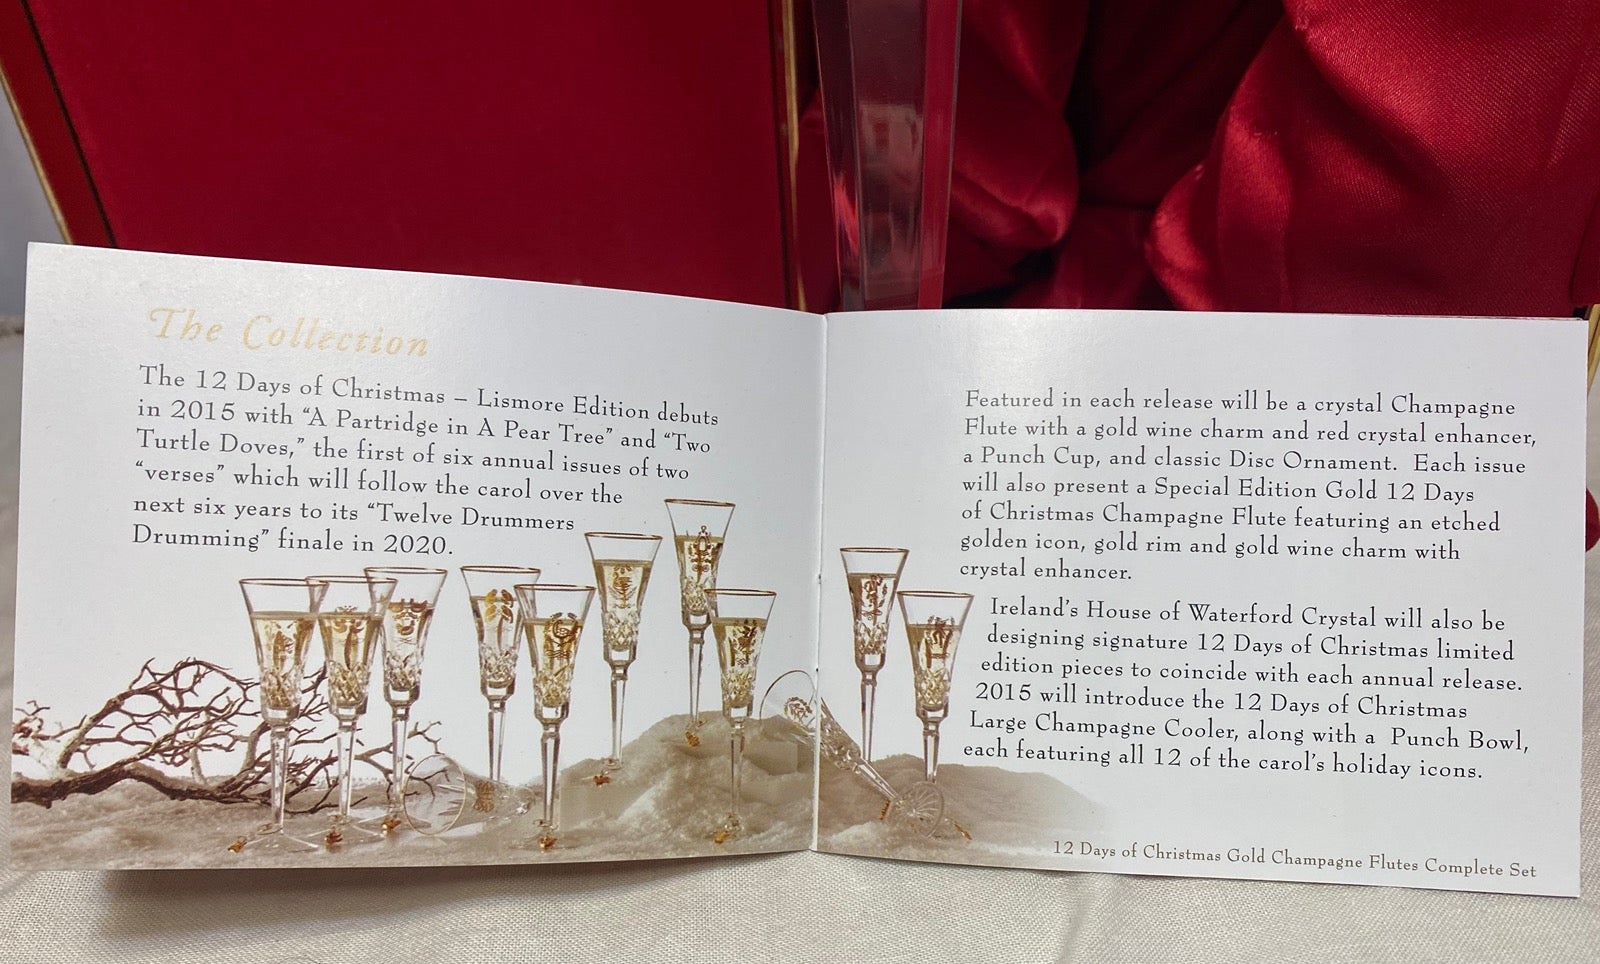 The Collection
The 12 Days of Christmas – Lismore Edition debuts
in 2015 with “A Partridge in A Pear Tree” and “Two
Turtle Doves,” the first of six annual issues of two
“verses” which will follow the carol over the
next six years to its “Twelve Drummers
Drumming” finale in 2020.
Featured in each release will be a crystal Champagne
Flute with a gold wine charm and red crystal enhancer,
a Punch Cup, and classic Disc Ornament. Each issue
will also present a Special Edition Gold 12 Days
of Christmas Champagne Flute featuring an etched
golden icon, gold rim and gold wine charm with
crystal enhancer.
Ireland’s House of Waterford Crystal will also be
designing signature 12 Days of Christmas limited
edition pieces to coincide with each annual release.
2015 will introduce the 12 Days of Christmas
Large Champagne Cooler, along with a Punch Bowl,
each featuring all 12 of the carol’s holiday icons.
12 Days of Christmas Gold Champagne Flutes Complete Set